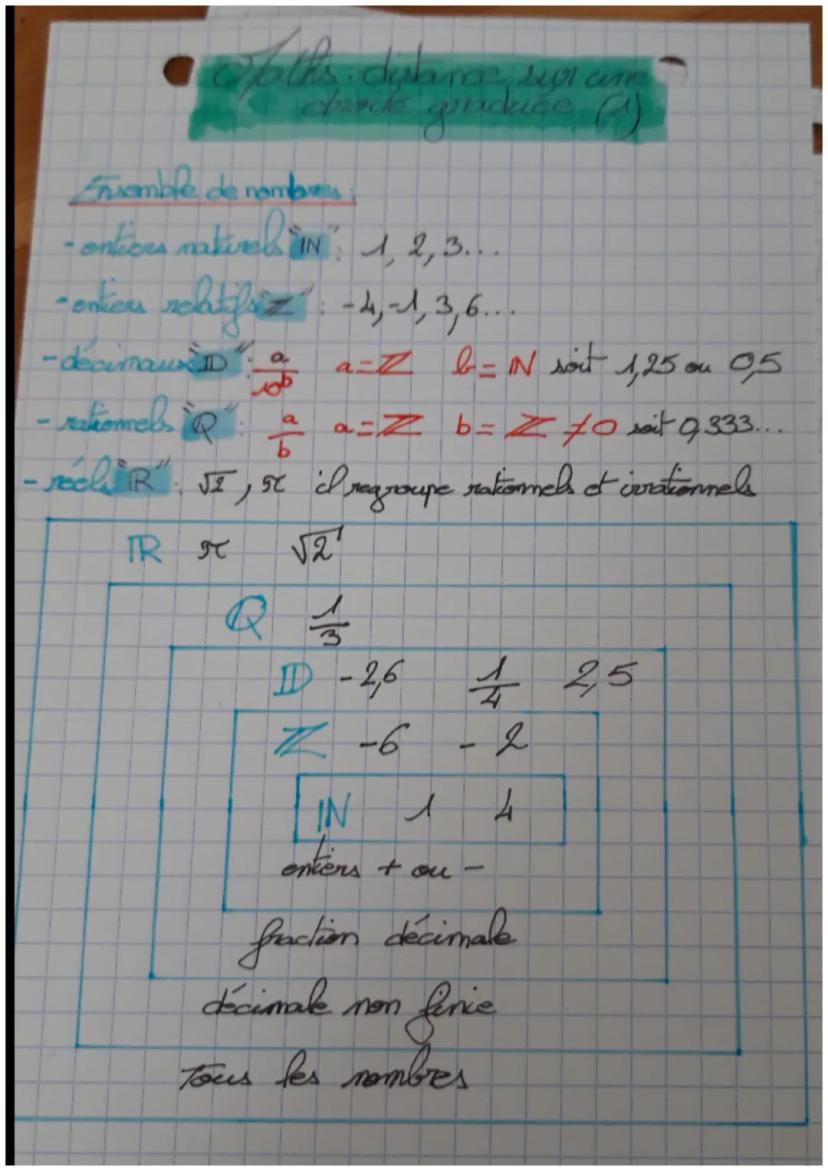 Maths: distance sur une
droite graduée (1)
Ensemble de nombres:
- entiers naturels "IN" : 1, 2, 3...
- entiers relatifs "Z" : -4, -1, 3, 6...
- décimaux "ID" : a/10^b a = Z b = IN soit 1,25 ou 0,5
- rationnels "Q" : a/b a = Z b = Z ≠ 0 soit 0,333...
- réels "IR" : √2, π il regroupe rationnels et irrationnels
IR π √2
Q 1/3
ID -2,6 1/4 2,5
Z -6 -2
IN 1 4
entiers + ou -
fraction décimale
décimale non finie
Tous les nombres